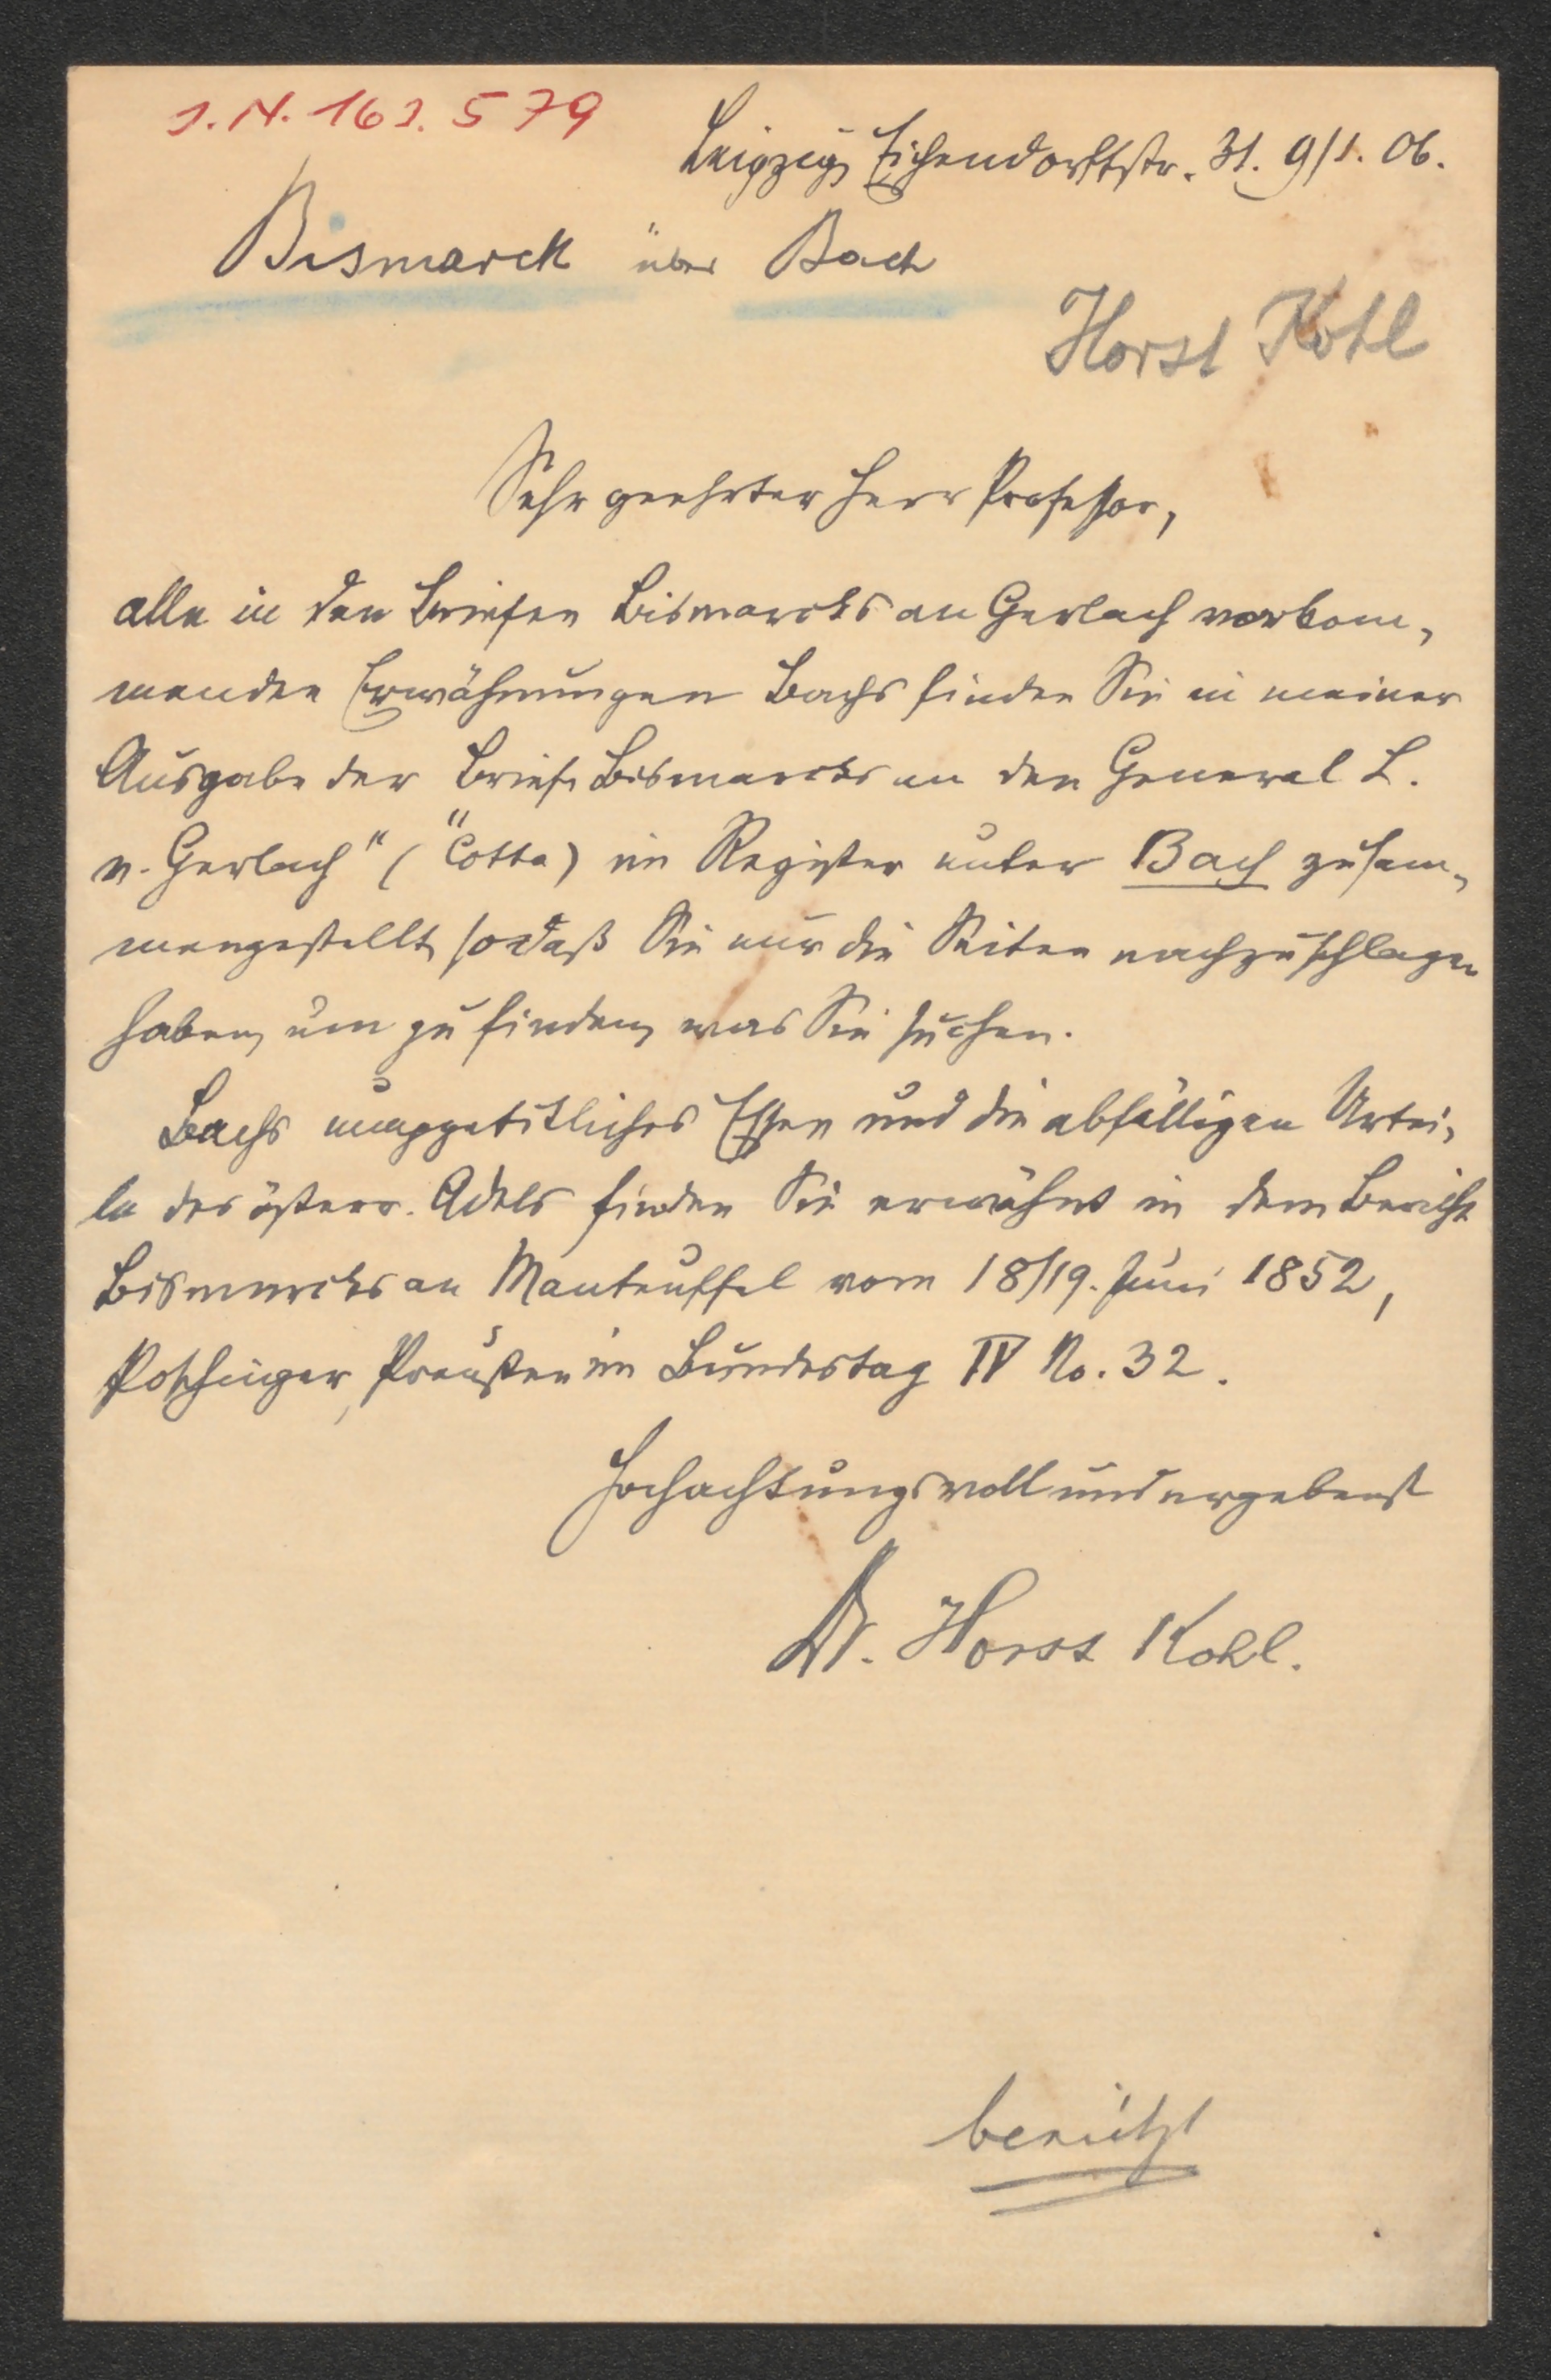 J. N. 163.579
Leipzig, Eichendorffstr. 31. 9/1. 06.
Bismarck über Bach
Horst Kohl
Sehr geehrter Herr Professor,
alle in den Briefen Bismarcks an Gerlach vorkom-
menden Erwähnungen Bachs finden Sie in meiner
Ausgabe der Briefe Bismarcks an den General L.
v. Gerlach" (Cotta) im Register unter Bach zusam-
mengestellt, sodaß Sie nur die Seiten nachzuschlagen
haben, um zu finden, was Sie suchen.
Bachs unappetitliches Essen und die abfälligen Urtei-
le des österr. Adels finden Sie erwähnt in dem Bericht
Bismarcks an Manteuffel vom 18/19. Juni 1852,
Poschinger, Preußen im Bundestag IV No. 32.
Hochachtungsvoll und ergebenst
Dr. Horst Kohl.
benützt